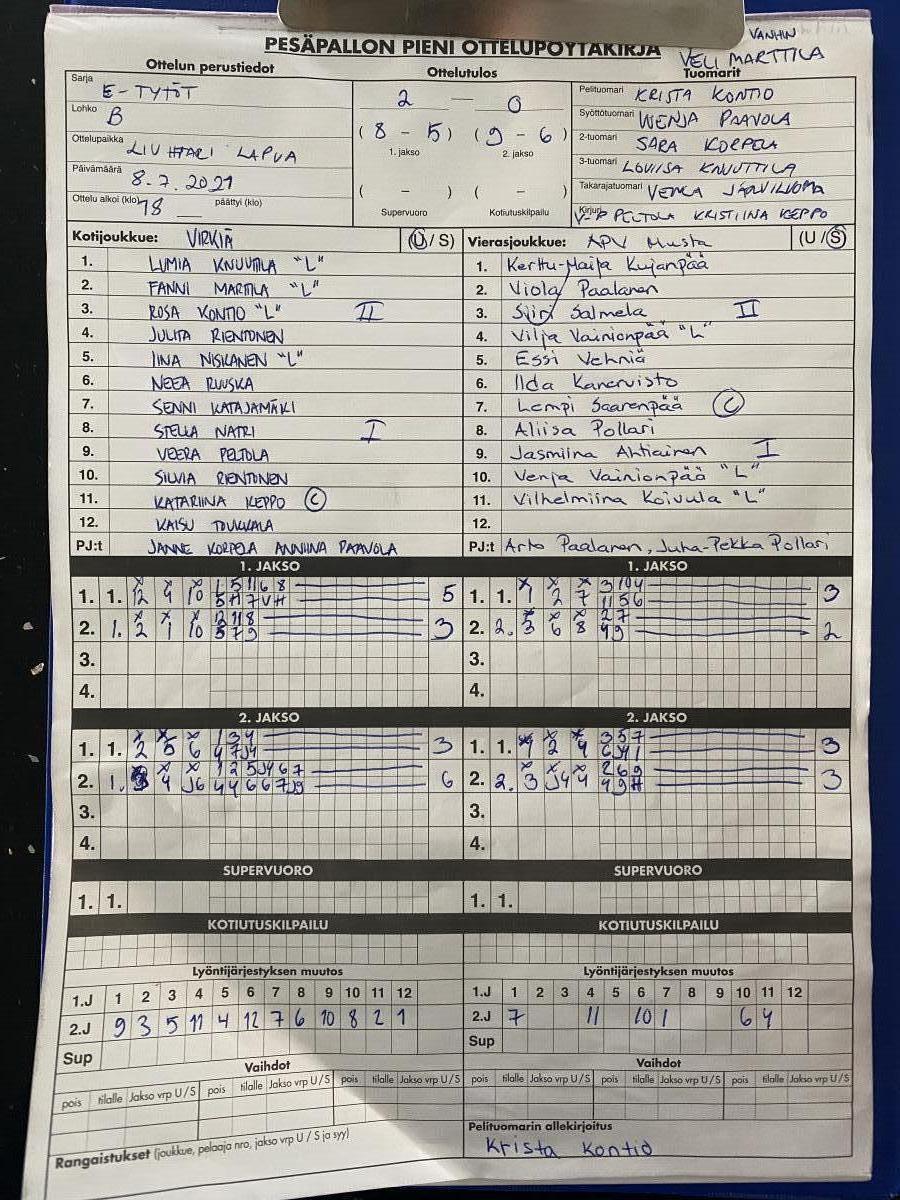 VANHIN
PESÄPALLON PIENI OTTELUPÖYTÄKIRJA
VELI MARTTILA
Ottelun perustiedot
Ottelutulos
Tuomarit
Sarja E-TYTÖT
Lohko B
Ottelupaikka LAPUA
Päivämäärä 8.7.2021
Ottelu alkoi (klo) 18 päättyi (klo)
2 — 0
(8 - 5) (9 - 6)
1. jakso 2. jakso
( - ) ( - )
Supervuoro Kotiutuskilpailu
Pelituomari KRISTA KONTIO
Syöttötuomari WENJA PAAVOLA
2-tuomari SARA KORPELA
3-tuomari LOVIISA KNUUTTILA
Takarajatuomari VENLA
Kirjuri V-P PELTOLA KRISTIINA KEPPO
Kotijoukkue: VIRKIÄ (U/S)
1. LUMIA KNUUTILA "L"
2. FANNI MARTILA "L"
3. ROSA KONTIO "L" II
4. JULITA RIENTONEN
5. IINA NISKANEN "L"
6. NEEA RUUSKA
7. SENNI KATAJAMÄKI
8. STELLA NATRI I
9. VEERA PELTOLA
10. SILVIA RIENTONEN
11. KATARIINA KEPPO C
12. KAISU TOUKKALA
PJ:t JANNE KORPELA ANNIINA PAAVOLA
Vierasjoukkue: APV Musta (U/S)
1. Kerttu-Maija Kujanpää
2. Viola Paalanen
3. Siiri Salmela II
4. Vilja Vainionpää "L"
5. Essi Vehniä
6. Ilda Kanervisto
7. Lempi Saarenpää C
8. Aliisa Pollari
9. Jasmiina Ahtiainen I
10. Venja Vainionpää "L"
11. Vilhelmiina Koivula "L"
12.
PJ:t Arto Paalanen, Juha-Pekka Pollari
1. JAKSO
1. 1. 12 4 10 1 5 11 6 8 5
5 H 7 V H
2. 1. 2 1 10 2 11 8 3
5 7 9
3.
4.
1. JAKSO
1. 1. 1 2 7 3 10 4 3
11 5 6
2. 2. 3 6 8 2 7 2
4 9
3.
4.
2. JAKSO
1. 1. 2 5 6 1 3 4 3
4 7 J4
2. 1. 4 J6 1 2 5 J4 6 7 6
4 4 6 6 7 J9
3.
4.
2. JAKSO
1. 1. 1 2 4 3 5 7 3
6 J4 1
2. 2. 3 J4 4 2 6 9 3
4 9 H
3.
4.
SUPERVUORO
1. 1.
SUPERVUORO
1. 1.
KOTIUTUSKILPAILU
KOTIUTUSKILPAILU
Lyöntijärjestyksen muutos
1.J 1 2 3 4 5 6 7 8 9 10 11 12
2.J 9 3 5 11 4 12 7 6 10 8 2 1
Sup
Lyöntijärjestyksen muutos
1.J 1 2 3 4 5 6 7 8 9 10 11 12
2.J 7 11 10 1 6 4
Sup
Vaihdot
pois tilalle Jakso vrp U/S pois tilalle Jakso vrp U/S pois tilalle Jakso vrp U/S
Vaihdot
pois tilalle Jakso vrp U/S pois tilalle Jakso vrp U/S pois tilalle Jakso vrp U/S
Rangaistukset (joukkue, pelaaja nro, jakso vrp U / S ja syy)
Pelituomarin allekirjoitus
Krista Kontio